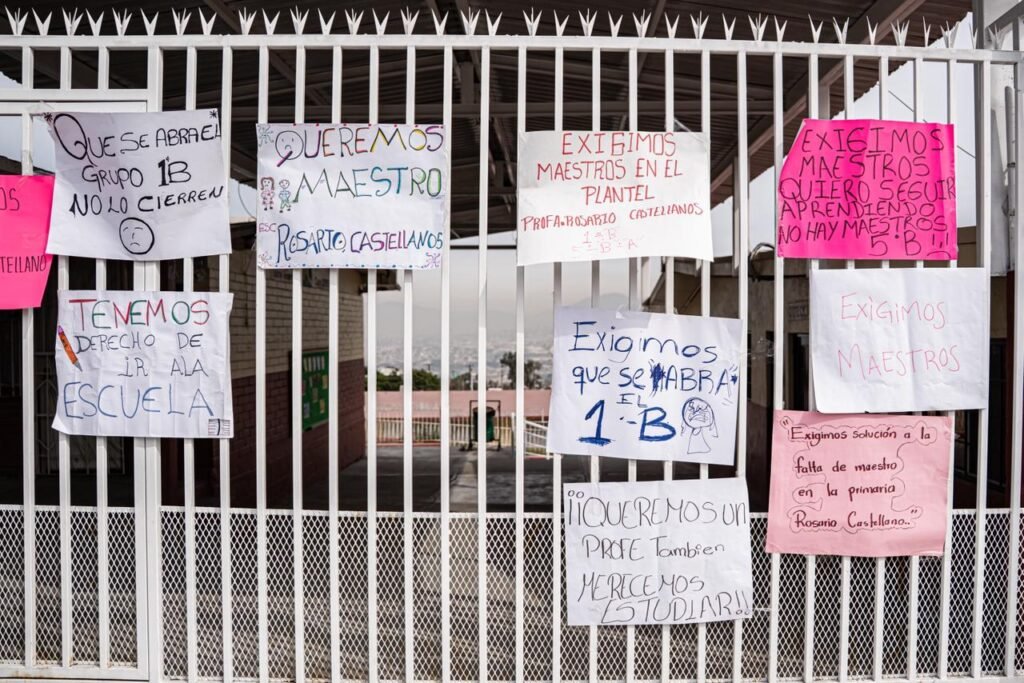 OS
TELLANOS
QUE SE ABRA EL
GRUPO 1B
NO LO CIERREN
QUEREMOS
MAESTRO
ESC
ROSARIO CASTELLANOS
EXIGIMOS
MAESTROS EN EL
PLANTEL
PROFA. ROSARIO CASTELLANOS
1-B
5-B A
EXIGIMOS
MAESTROS
QUIERO SEGUIR
APRENDIENDO
NO HAY MAEZTROS
5-B !!
TENEMOS
DERECHO DE
IR ALA
ESCUELA
Exigimos
que se ABRA
EL
1-B
EXIGIMOS
MAESTROS
"Exigimos solución a la
falta de maestro
en la primaria
Rosario Castellano.."
¡¡QUEREMOS UN
PROFE También
MERECEMOS
ESTUDIAR!!